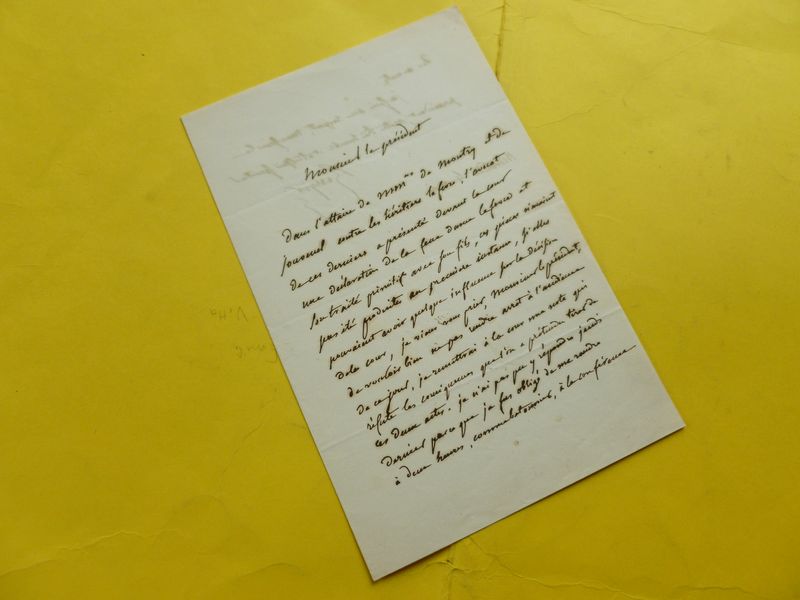 Monsieur le président
Dans l'affaire de MMes de Montry et de
jouvenel contre les héritiers le fevre, l'avocat
de ces derniers a présenté devant la cour
une déclaration de la feue dame le fevre et
son traité primitif avec son fils, ces pièces n'avaient
pas été produites en première instance, si elles
pouvaient avoir quelque influence sur la décision
de la cour, je viens vous prier, Monsieur le président,
de vouloir bien ne pas rendre arrêt à l'audience
de ce jour, je remettrai à la cour une note qui
réfute les conséquences que l'on a prétendu tirer de
ces deux actes. je n'ai pas pu y répondre jeudi
dernier parce que je fus obligé de me rendre
à deux heures, à la conférence